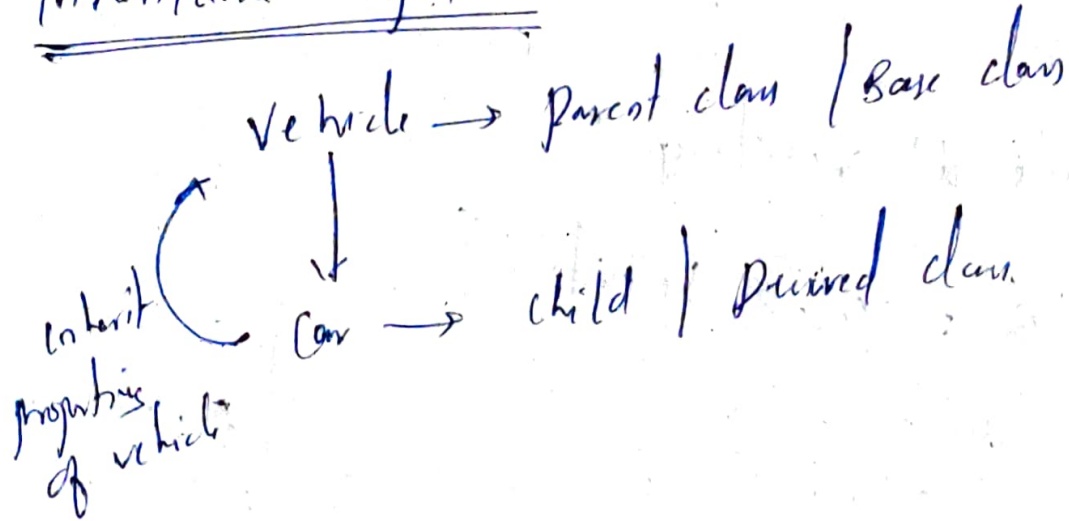 Vehicle → Parent class / Base class
Car → child / Derived class.
inherit
properties
of vehicle